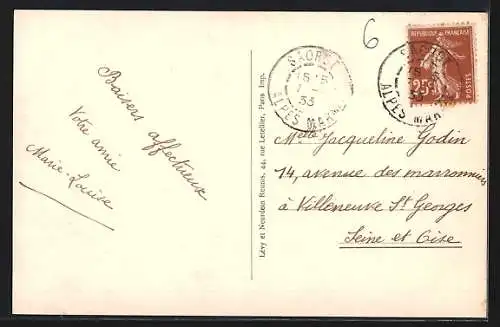 Baisers affectueux
Votre amie
Marie-Louise
Lévy et Neurdein Réunis, 44, rue Letellier, Paris Imp.
6
SAORGE
15
ALPES MARMES
RÉPUBLIQUE FRANÇAISE
25c
POSTES
ALPES MAR
Melle Jacqueline Godin
14, avenue des marronniers
à Villeneuve St Georges
Seine et Oise